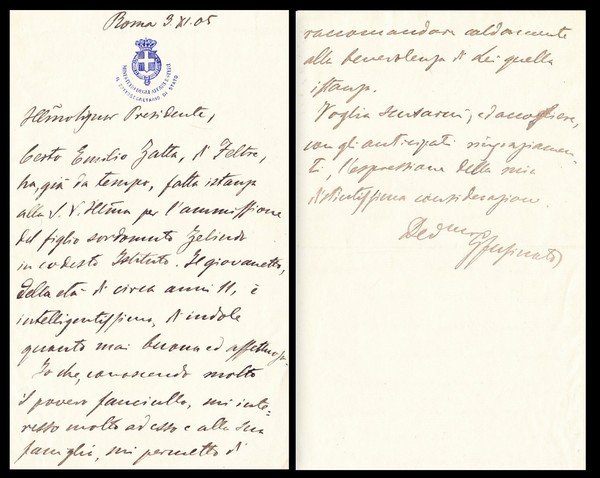 Roma 3. XI. 05
MINISTERO DEGLI AFFARI ESTERI
IL SOTTOSEGRETARIO DI STATO
Ill͞mo Signor Presidente,
Certo Emilio Zatta, di Feltre,
ha, già da tempo, fatta istanza
alla S. V. Ill͞ma per l'ammissione
del figlio sordomuto Zelindo
in codesto Istituto. Il giovanetto,
della età di circa anni 11, è
intelligentissimo, di indole
quanto mai buona ed affettuosa.
Io che, conoscendo molto
il povero fanciullo, mi inte-
resso molto ad esso e alla sua
famiglia, mi permetto di
raccomandare caldamente
alla benevolenza di Lei quella
istanza.
Voglia scusarmi, ed accogliere,
con gli anticipati ringraziamen-
ti, l'espressione della mia
distintissima considerazione.
Dev.mo
Fusinato